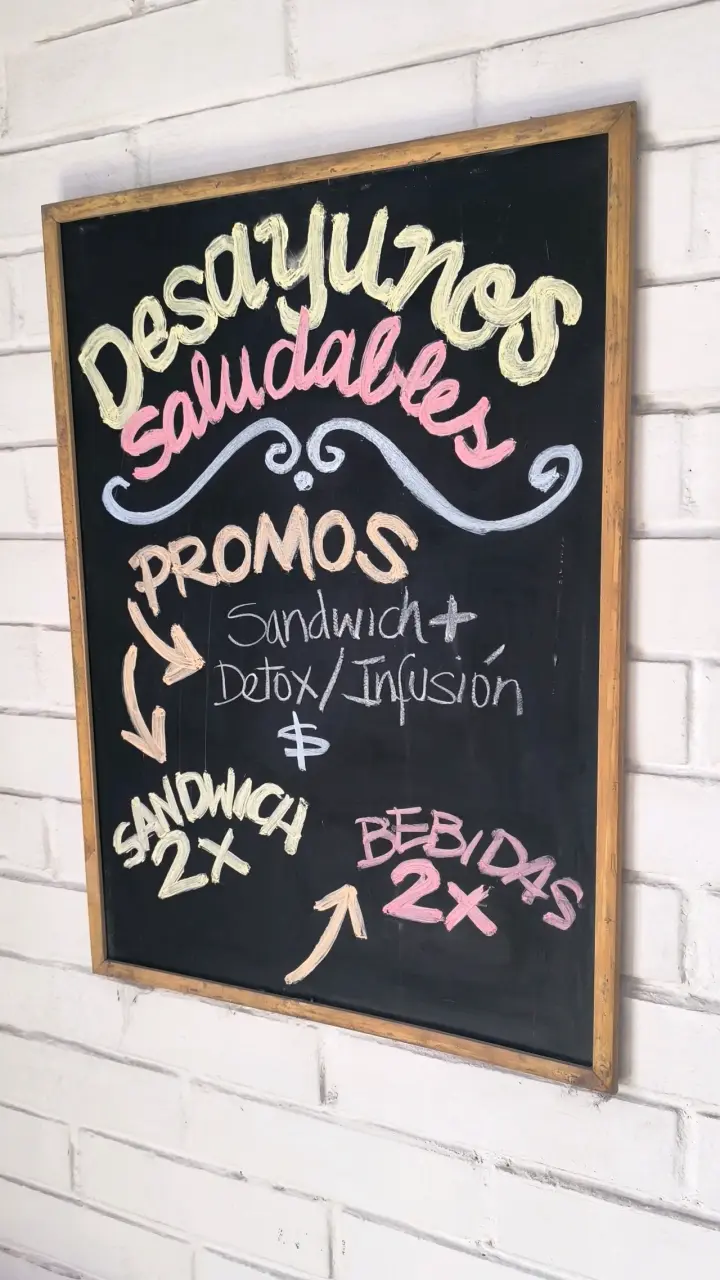 Desayunos
saludables
PROMOS
Sandwich +
Detox/Infusión
$
SANDWICH
2x
BEBIDAS
2x